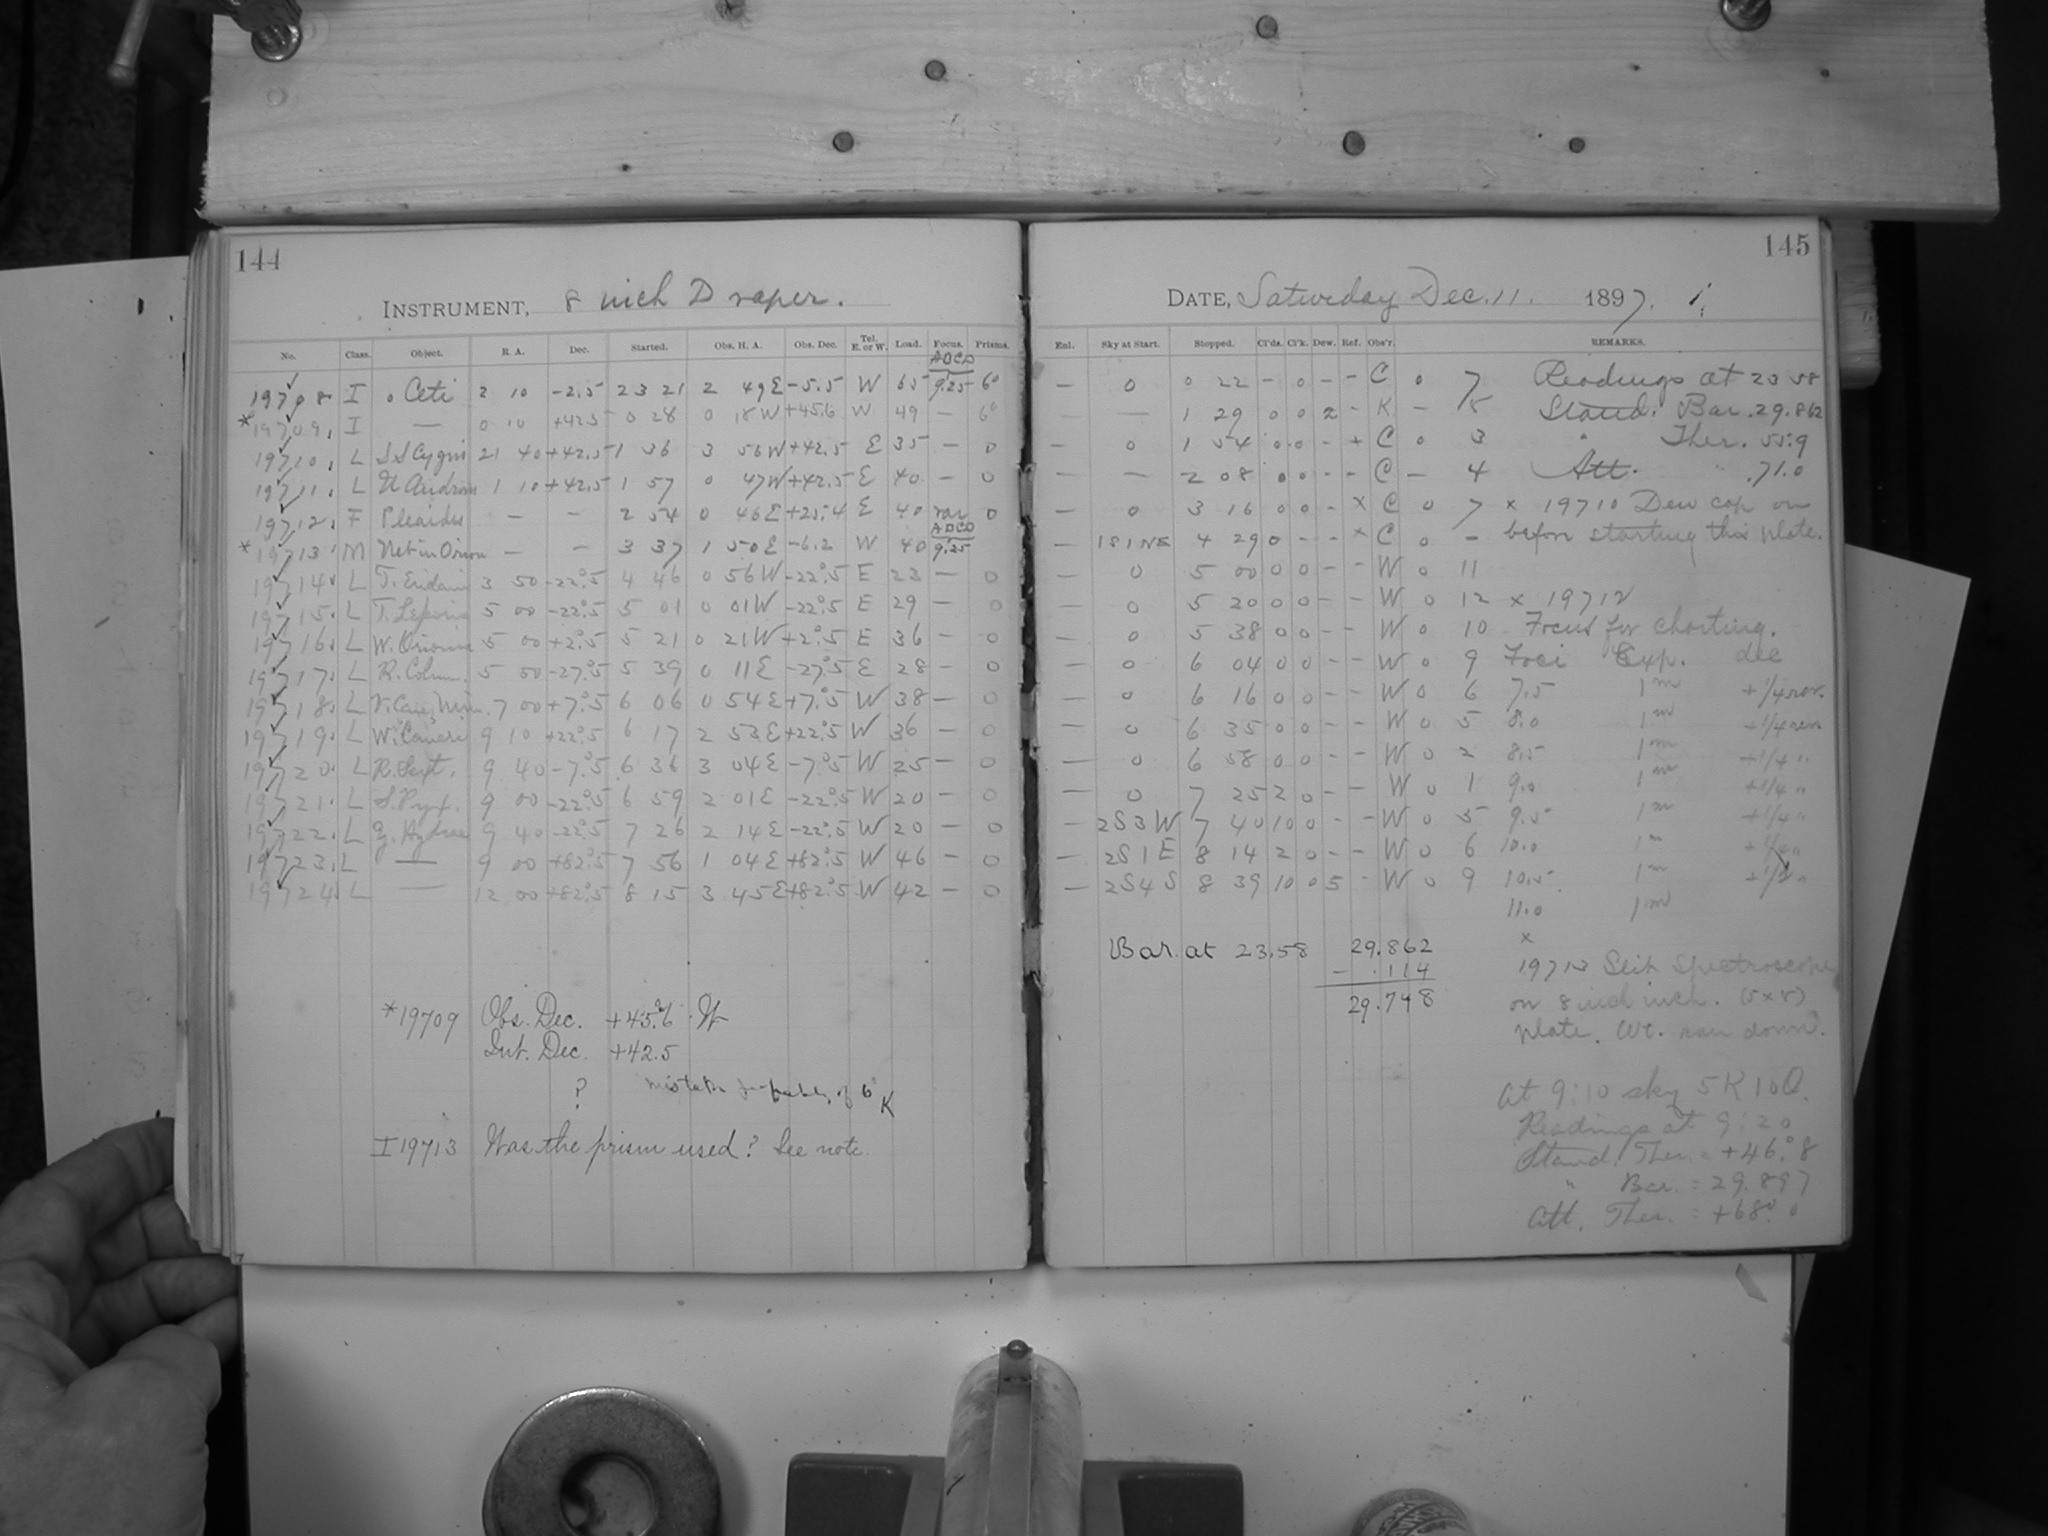 144
INSTRUMENT, 8 inch Draper.
No. Class. Object. R. A. Dec. Started. Obs. H. A. Obs. Dec. Tel. E. or W. Load. Focus. Prisms.
ADCD
19708. I o Ceti 2 10 -2.5 23 21 2 49E -5.5 W 65 9.25 6°
*19709. I — 0 10 +42.5 0 28 0 18W +45.6 W 49 — 6°
19710. L SS Cygni 21 40 +42.5 1 36 3 56W +42.5 E 35 — 0
19711. L U Androm 1 10 +42.5 1 57 0 47W +42.5 E 40 — 0
19712. F Pleaides — — 2 54 0 46E +25.4 E 40 var 0
ADCD
*19713. M Neb in Orion — — 3 37 1 50E -6.2 W 40 9.25
19714. L T. Eridani 3 50 -22°.5 4 46 0 56W -22°.5 E 23 — 0
19715. L T. Leporis 5 00 -22°.5 5 01 0 01W -22°.5 E 29 — 0
19716. L W. Orionis 5 00 +2°.5 5 21 0 21W +2°.5 E 36 — 0
19717. L R. Colum. 5 50 -27°.5 5 39 0 11E -27°.5 E 28 — 0
19718. L V. Can. Min. 7 00 +7°.5 6 06 0 54E +7°.5 W 38 — 0
19719. L W. Cancri 9 10 +22°.5 6 17 2 53E +22°.5 W 36 — 0
19720. L R. Sext. 9 40 -7°.5 6 36 3 04E -7°.5 W 25 — 0
19721. L S. Pyx. 9 00 -22°.5 6 59 2 01E -22°.5 W 20 — 0
19722. L Y. Hydrae 9 40 -22°.5 7 26 2 14E -22°.5 W 20 — 0
19723. L — 9 00 +82°.5 7 56 1 04E +82°.5 W 46 — 0
19724. L — 12 00 +82°.5 8 15 3 45E +82°.5 W 42 — 0
*19709 Obs. Dec. +45°.6 W
Int. Dec. +42.5
? mistake probably of 6° K
I 19713 Was the prism used? See note.
145
DATE, Saturday Dec. 11. 1897.
Enl. Sky at Start. Stopped. Cl'ds. Cl'k. Dew. Ref. Obs'r. REMARKS.
— 0 0 22 - 0 - - C 0 7 Readings at 23 58
— — 1 29 0 0 2 - K - 5 Stand. Bar. 29.862
— 0 1 54 0 0 - + C 0 3 " Ther. 55.9
— — 2 08 0 0 - - C - 4 Att. " 71.0
— 0 3 16 0 0 - x C 0 7 x 19710 Dew cap on
— 1S1NE 4 29 0 - - x C 0 - before starting this plate.
— 0 5 00 0 0 - - W 0 11
— 0 5 20 0 0 - - W 0 12 x 19712
— 0 5 38 0 0 - - W 0 10 Focus for charting.
— 0 6 04 0 0 - - W 0 9 Foci Exp. dec
— 0 6 16 0 0 - - W 0 6 7.5 1m +1/4 rev.
— 0 6 35 0 0 - - W 0 5 8.0 1m +1/4 rev.
— 0 6 58 0 0 - - W 0 2 8.5 1m +1/4 "
— 0 7 25 2 0 - - W 0 1 9.0 1m +1/4 "
— 2S3W 7 40 10 0 - - W 0 5 9.5 1m +1/4 "
— 2S1E 8 14 2 0 - - W 0 6 10.0 1m +1/4 "
— 2S4S 8 39 10 0 5 - W 0 9 10.5 1m +1/2 "
11.0 1m
Bar. at 23.58 29.862
- .114
29.748
x
19713 Slit Spectroscope
on 8 inch inch. (5x8)
plate. Wt. ran down.
At 9:10 sky 5K10O.
Readings at 9:20
Stand. Ther. = +46°.8
" Bar. = 29.897
Att. Ther. = +68°.0